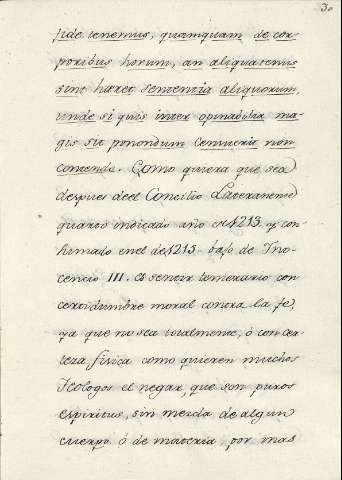 3.
fide tenemus, quamquam de cor-
poribus horum, an aliquatenus
sint hæret sententia aliquorum,
unde si quis inter opinabilia ma-
gis sit ponendum censuerit non
contendo. Como quiera que sea
despues deel Concilio Lateranense
quarto indicado año de 1213. y con-
firmado en el de 1215. bajo de Ino-
cencio III. es sentir temerario con
certidumbre moral contra la fe,
ya que no sea totalmente, ó con cer-
teza fisica como quieren muchos
Teologos el negar, que son puros
espiritus, sin mezcla de algun
cuerpo ó de materia, por mas